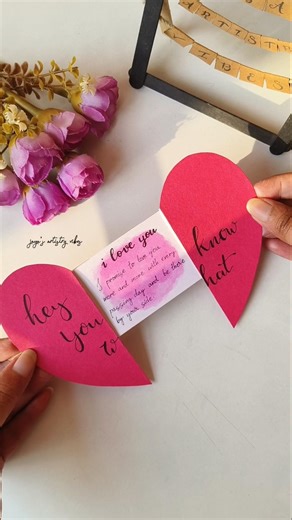 ARTIST
VIBES
artistry
i love you
I promise to love you
more and more with every
passing day and be there
by your side
hey
you
w
know
hat